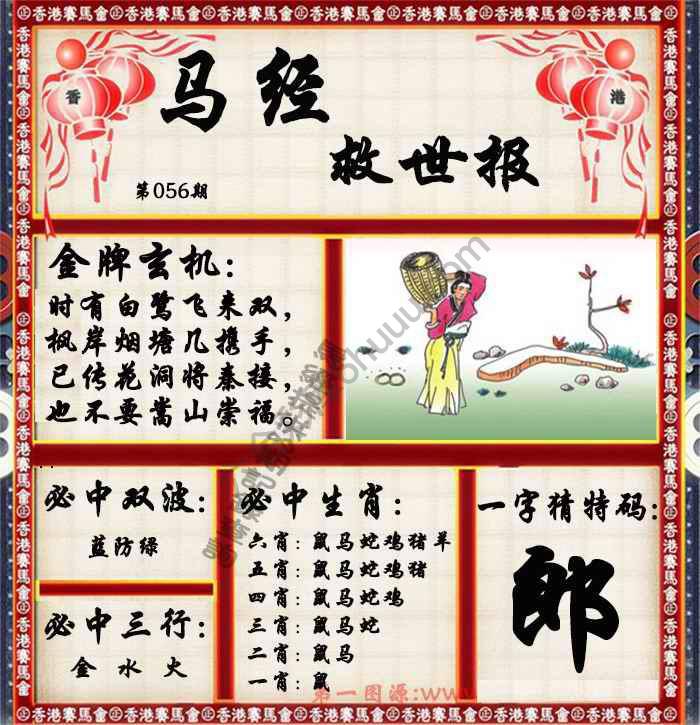 香港賽馬會
香
港
马经
救世报
第056期
金牌玄机：
时有白鹭飞来双，
枫岸烟塘几携手，
已传花洞将秦接，
也不要嵩山崇福。
必中双波：
蓝防绿
必中三行：
金 水 火
必中生肖：
六肖：鼠马蛇鸡猪羊
五肖：鼠马蛇鸡猪
四肖：鼠马蛇鸡
三肖：鼠马蛇
二肖：鼠马
一肖：鼠
一字猜特码：
郎
第一图源:www